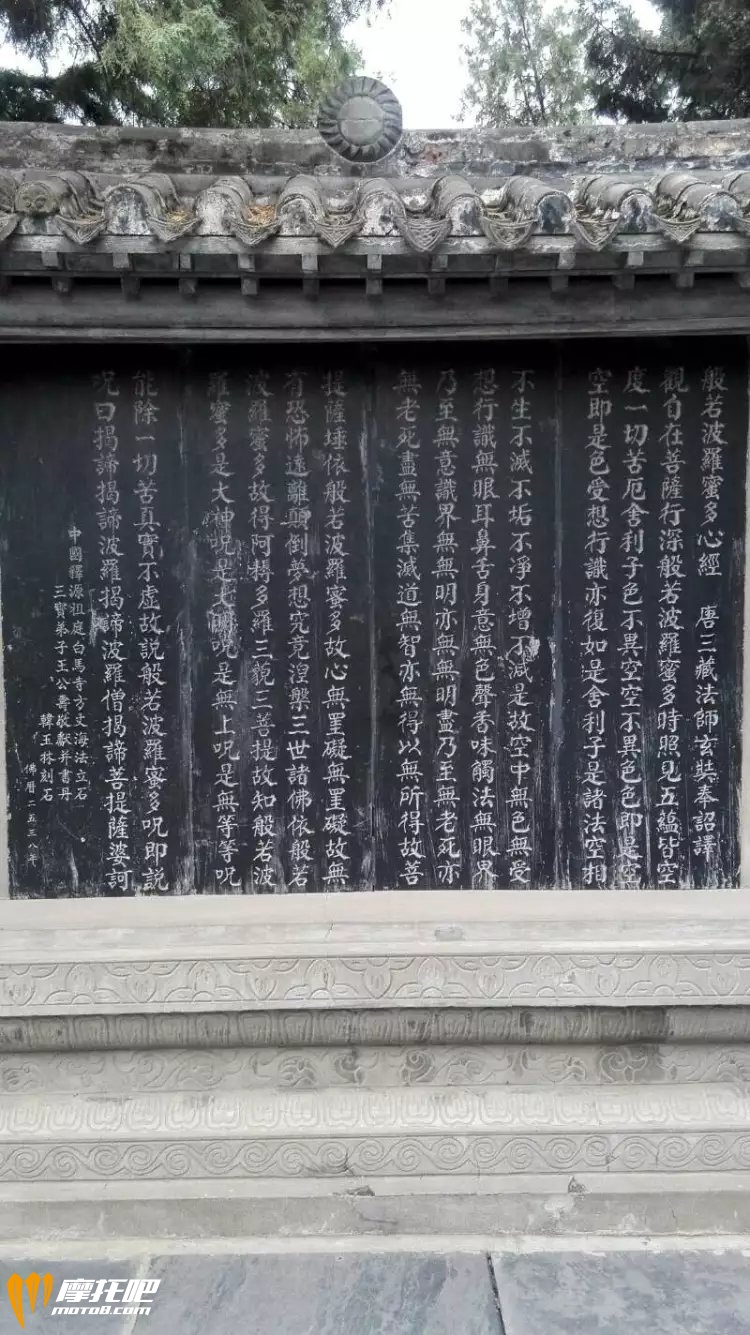 般若波羅蜜多心經 唐三藏法師玄奘奉詔譯
觀自在菩薩行深般若波羅蜜多時照見五蘊皆空
度一切苦厄舍利子色不異空空不異色色即是空
空即是色受想行識亦復如是舍利子是諸法空相
不生不滅不垢不淨不增不減是故空中無色無受
想行識無眼耳鼻舌身意無色聲香味觸法無眼界
乃至無意識界無無明亦無無明盡乃至無老死亦
無老死盡無苦集滅道無智亦無得以無所得故菩
提薩埵依般若波羅蜜多故心無罣礙無罣礙故無
有恐怖遠離顛倒夢想究竟涅槃三世諸佛依般若
波羅蜜多故得阿耨多羅三藐三菩提故知般若波
羅蜜多是大神呪是大明呪是無上呪是無等等呪
能除一切苦真實不虛故説般若波羅蜜多呪即説
呪曰揭諦揭諦波羅揭諦波羅僧揭諦菩提薩婆訶
中國釋源祖庭白馬寺方丈海法立石
三寶弟子王公壽敬獻并書丹
韓玉林刻石
佛曆二五三八年
摩托吧
MOTO8.COM